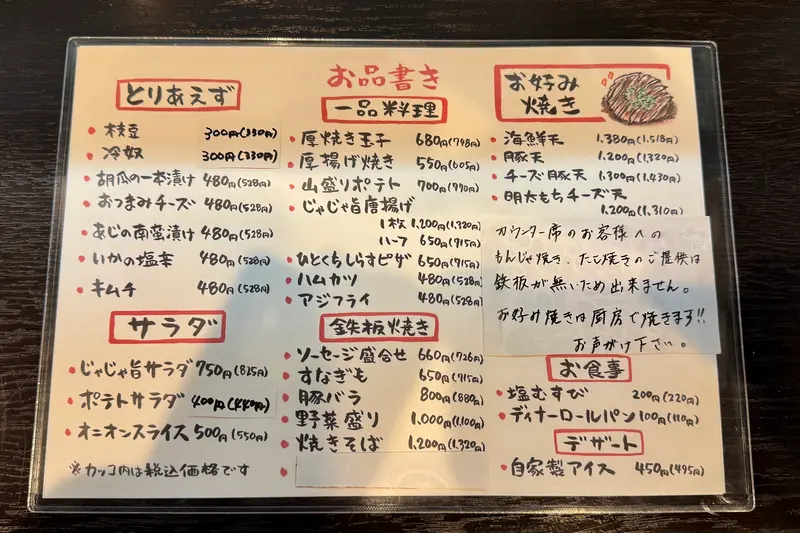 お品書き
とりあえず
・枝豆 300円(330円)
・冷奴 300円(330円)
・胡瓜の一本漬け 480円(528円)
・おつまみチーズ 480円(528円)
・あじの南蛮漬け 480円(528円)
・いかの塩辛 480円(528円)
・キムチ 480円(528円)
サラダ
・じゃじゃ旨サラダ 750円(825円)
・ポテトサラダ 400円(440円)
・オニオンスライス 500円(550円)
※カッコ内は税込価格です
一品料理
・厚焼き玉子 680円(748円)
・厚揚げ焼き 550円(605円)
・山盛りポテト 700円(770円)
・じゃじゃ旨唐揚げ
1枚 1,200円(1,320円)
ハーフ 650円(715円)
・ひとくちしらすピザ 650円(715円)
・ハムカツ 480円(528円)
・アジフライ 480円(528円)
鉄板焼き
・ソーセージ盛合せ 660円(726円)
・すなぎも 650円(715円)
・豚バラ 800円(880円)
・野菜盛り 1,000円(1,100円)
・焼きそば 1,200円(1,320円)
お好み
焼き
・海鮮天 1,380円(1,518円)
・豚天 1,200円(1,320円)
・チーズ豚天 1,300円(1,430円)
・明太もちチーズ天
1,200円(1,310円)
カウンター席のお客様への
もんじゃ焼き、たこ焼きのご提供は
鉄板が無いため出来ません。
お好み焼きは厨房で焼きます!!
お声がけ下さい。
お食事
・塩むすび 200円(220円)
・ディナーロールパン 100円(110円)
デザート
・自家製アイス 450円(495円)